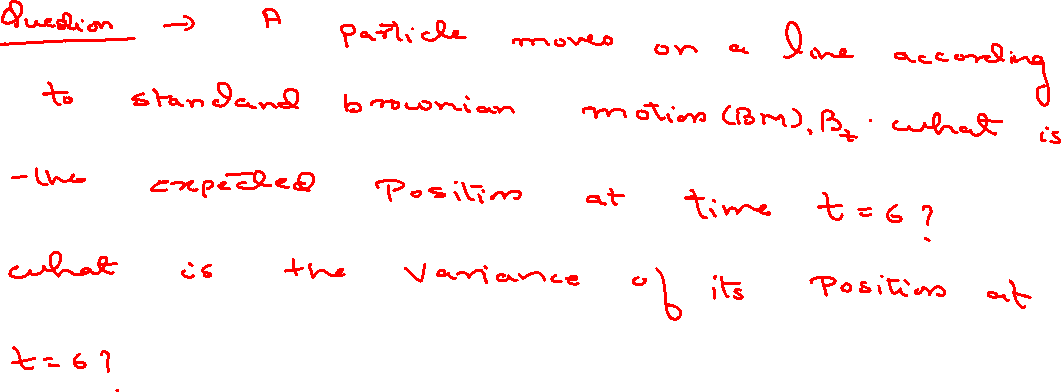 Question → A particle moves on a line according
to standard brownian motion (BM), B_t. what is
the expected position at time t = 6 ?
what is the variance of its position at
t = 6 ?